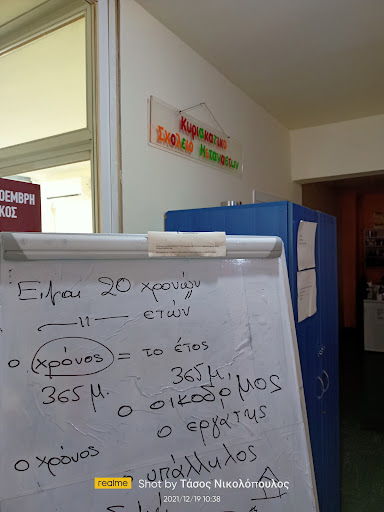 Κυριακάτικο
Σχολείο Μεταναστών
ΟΕΜΒΡΗ
ΚΟΣ
Είμαι 20 χρονών
—— 11 —— ετών
ο χρόνος = το έτος
365 μ. 365 μ.
ο οικοδόμος
ο εργάτης
ο χρόνος
υπάλληλος
realme Shot by Τάσος Νικολόπουλος
2021/12/19 10:38